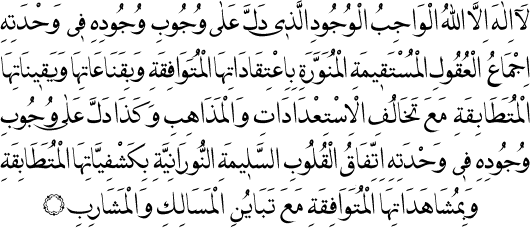 لَٓا اِلٰهَ اِلَّا اللّٰهُ الْوَاجِبُ الْوُجُودِ الَّذٖى دَلَّ عَلٰى وُجُوبِ وُجُودِهٖ فٖى وَحْدَتِهٖ
اِجْمَاعُ الْعُقُولِ الْمُسْتَقٖيمَةِ الْمُنَوَّرَةِ بِاِعْتِقَادَاتِهَا الْمُتَوَافِقَةِ وَبِقَنَاعَاتِهَا وَيَقٖينَاتِهَا
الْمُتَطَابِقَةِ مَعَ تَخَالُفِ الْاِسْتِعْدَادَاتِ وَالْمَذَاهِبِ وَكَذَا دَلَّ عَلٰى وُجُوبِ
وُجُودِهٖ فٖى وَحْدَتِهٖ اِتِّفَاقُ الْقُلُوبِ السَّلٖيمَةِ النُّورَانِيَّةِ بِكَشْفِيَّاتِهَا الْمُتَطَابِقَةِ
وَبِمُشَاهَدَاتِهَا الْمُتَوَافِقَةِ مَعَ تَبَايُنِ الْمَسَالِكِ وَالْمَشَارِبِ ۝